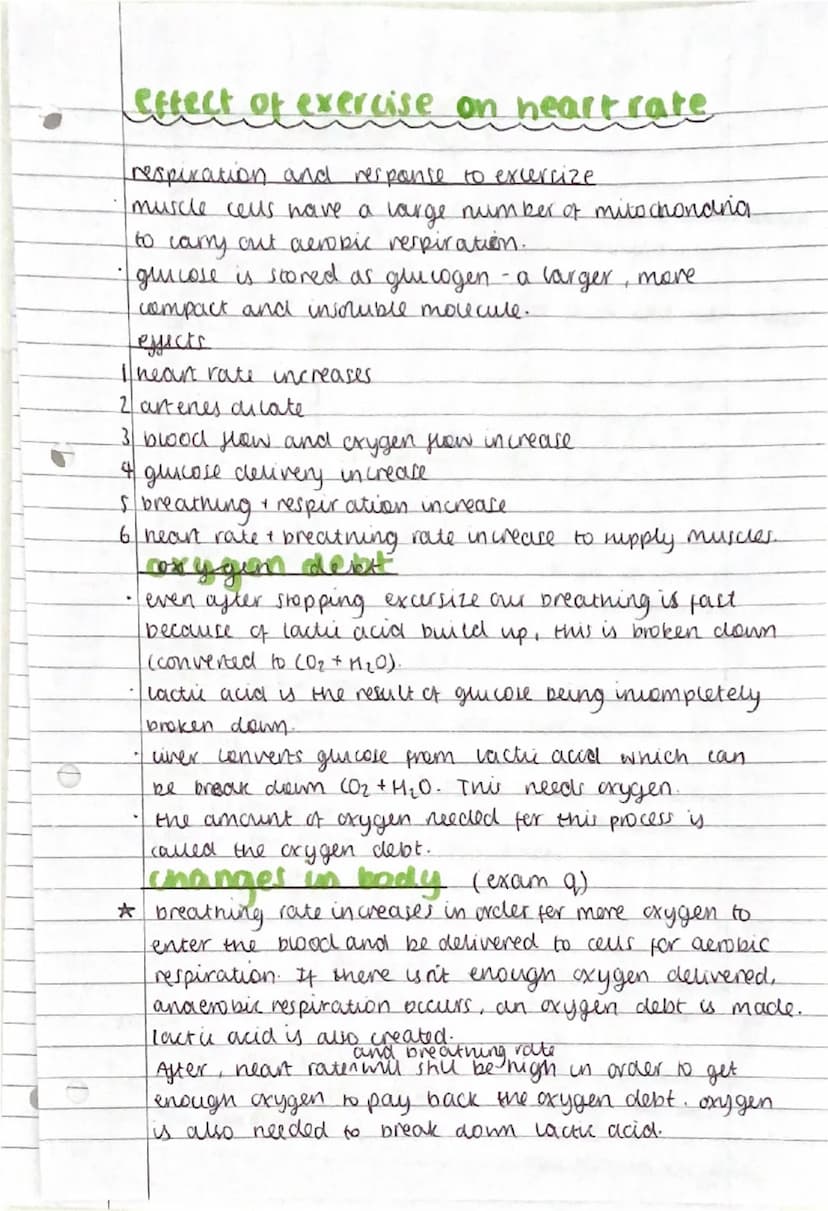 effect of exercise on heart rate
respiration and response to excersize
· muscle cells have a large number of mitochondria
to carry out aerobic respiration.
· glucose is stored as glucogen - a larger, more
compact and insoluble molecule.
effects
1 heart rate increases
2 arteries dilate
3 blood flow and oxygen flow increase
4 glucose delivery increase
5 breathing + respiration increase
6 heart rate + breathing rate increase to supply muscles.
oxygen debt
· even after stopping excersize our breathing is fast
because of lactic acid build up, this is broken down
(converted to CO₂ + H₂O).
· lactic acid is the result of glucose being incompletely
broken down.
· liver converts glucose from lactic acid which can
be break down CO₂ + H₂O. This needs oxygen.
· the amount of oxygen needed for this process is
called the oxygen debt.
changes in body (exam q)
☆ breathing rate increases in order for more oxygen to
enter the blood and be delivered to cells for aerobic
respiration. If there isn't enough oxygen delivered,
anaerobic respiration occurs, an oxygen debt is made.
lactic acid is also created.
and breathing rate
After, heart rate will still be high in order to get
enough oxygen to pay back the oxygen debt. oxygen
is also needed to break down lactic acid.